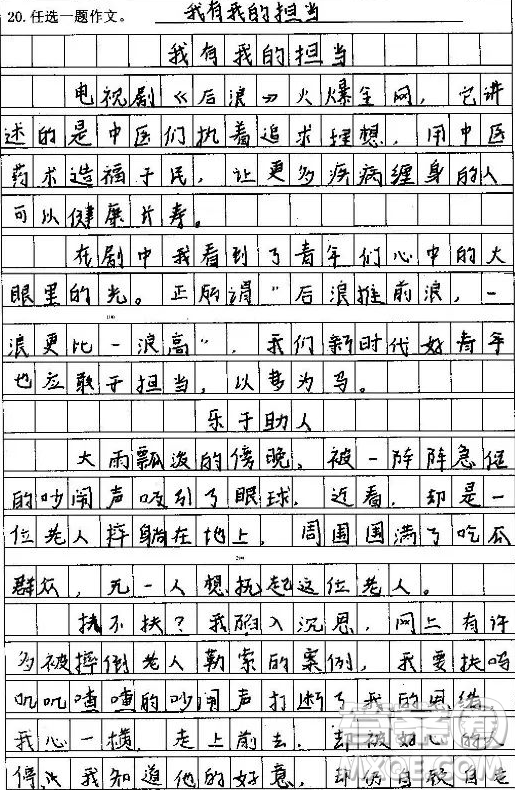 20. 任选一题作文。 我有我的担当
我有我的担当
电视剧《后浪》火爆全网，它讲
述的是中医们执着追求理想，用中医
药术造福于民，让更多疾病缠身的人
可以健康长寿。
在剧中我看到了青年们心中的大
眼里的光。正所谓"后浪推前浪，一
浪更比一浪高"，我们新时代好青年
也应敢于担当，以梦为马。
乐于助人
大雨瓢泼的傍晚，被一阵阵急促
的吵闹声吸引了眼球，近看，却是一
位老人摔躺在地上，周围围满了吃瓜
群众，无一人想扶起这位老人。
扶不扶？我陷入沉思，网上有许
多被摔倒老人勒索的案例，我要扶吗
叽叽喳喳的吵闹声打断了我的思绪
我心一横，走上前去，却被好心的人
停 我知道他的好意，却仍自顾自走